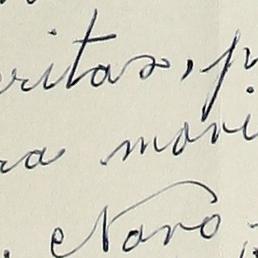 ritas, p
ra mori
. Naro,